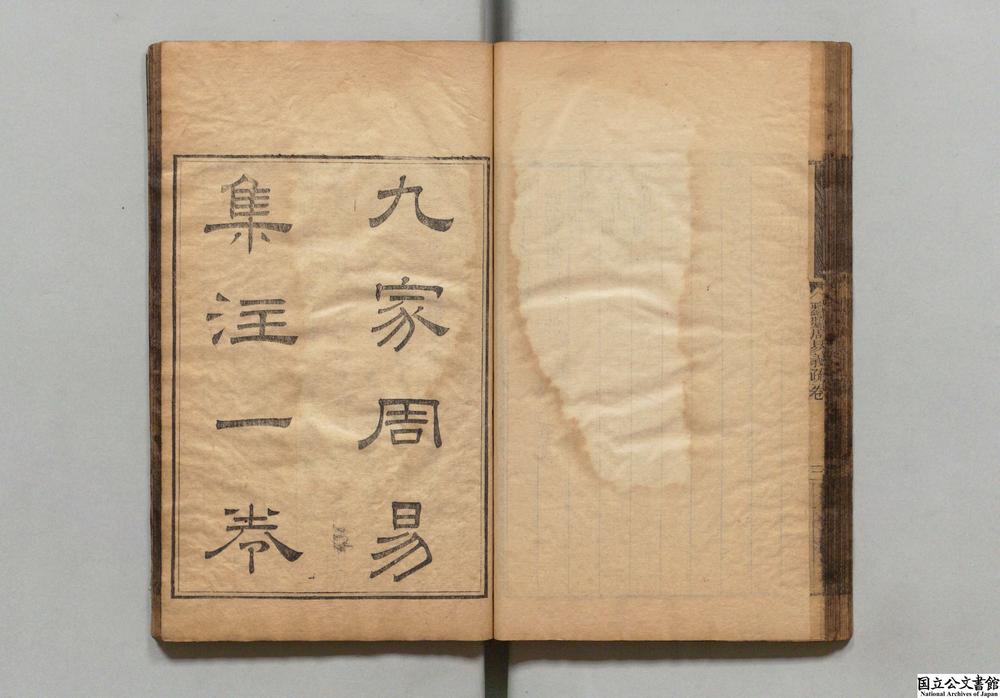 九家周易
集注一卷
国立公文書館
National Archives of Japan